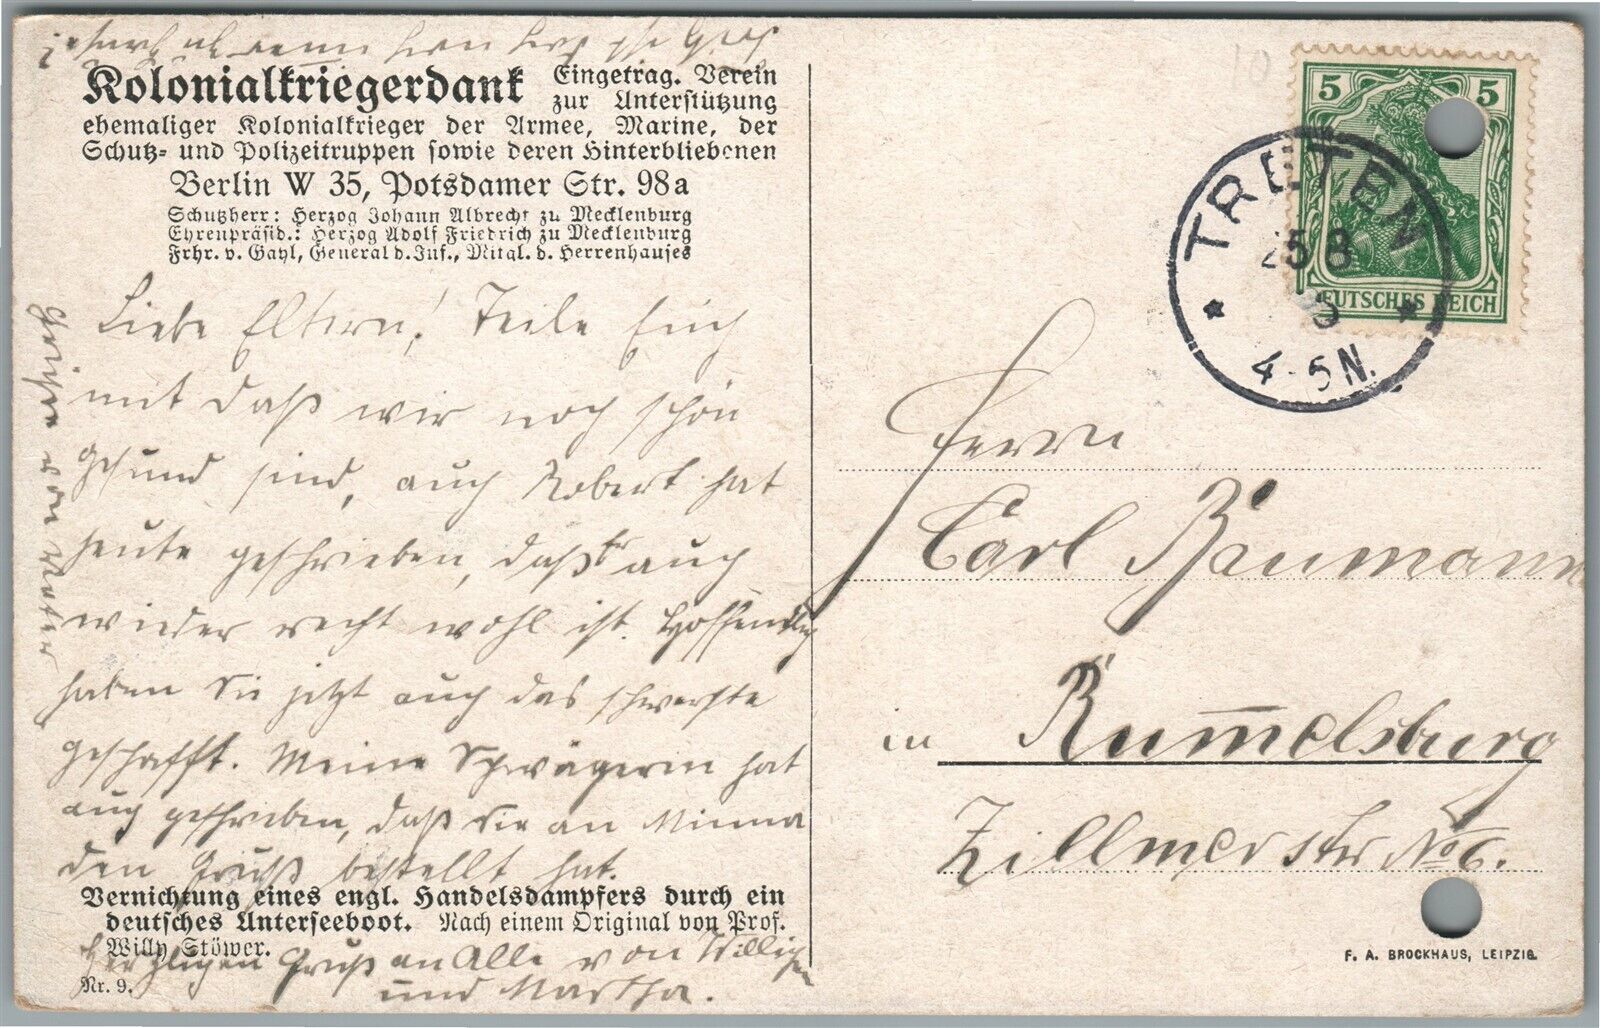 Kolonialkriegerdank Eingetrag. Verein
zur Unterstützung
ehemaliger Kolonialkrieger der Armee, Marine, der
Schutz- und Polizeitruppen sowie deren Hinterbliebenen
Berlin W 35, Potsdamer Str. 98a
Schutzherr: Herzog Johann Albrecht zu Mecklenburg
Ehrenpräsid.: Herzog Adolf Friedrich zu Mecklenburg
Frhr. v. Gayl, General d. Inf., Mitgl. d. Herrenhauses
Liebe Eltern! Teile Euch
mit daß wir noch schön
gesund sind, auch Robert hat
heute geschrieben, daß er auch
wieder recht wohl ist. Hoffendlich
haben Sie jetzt auch das schwerste
geschafft. Meine Schwägerin hat
auch geschrieben, daß sie an Minna
den Gruß bestellt hat.
Vernichtung eines engl. Handelsdampfers durch ein
deutsches Unterseeboot. Nach einem Original von Prof.
Willy Stöwer.
Herzlichen Gruß an Alle von Willichen
und Martha.
Nr. 9.
5 5
DEUTSCHES REICH
TRETEN
25 8
4-5 N.
Herrn
Carl Baumann
in Rummelsburg
Zillmerstr No 6.
F. A. BROCKHAUS, LEIPZIG.